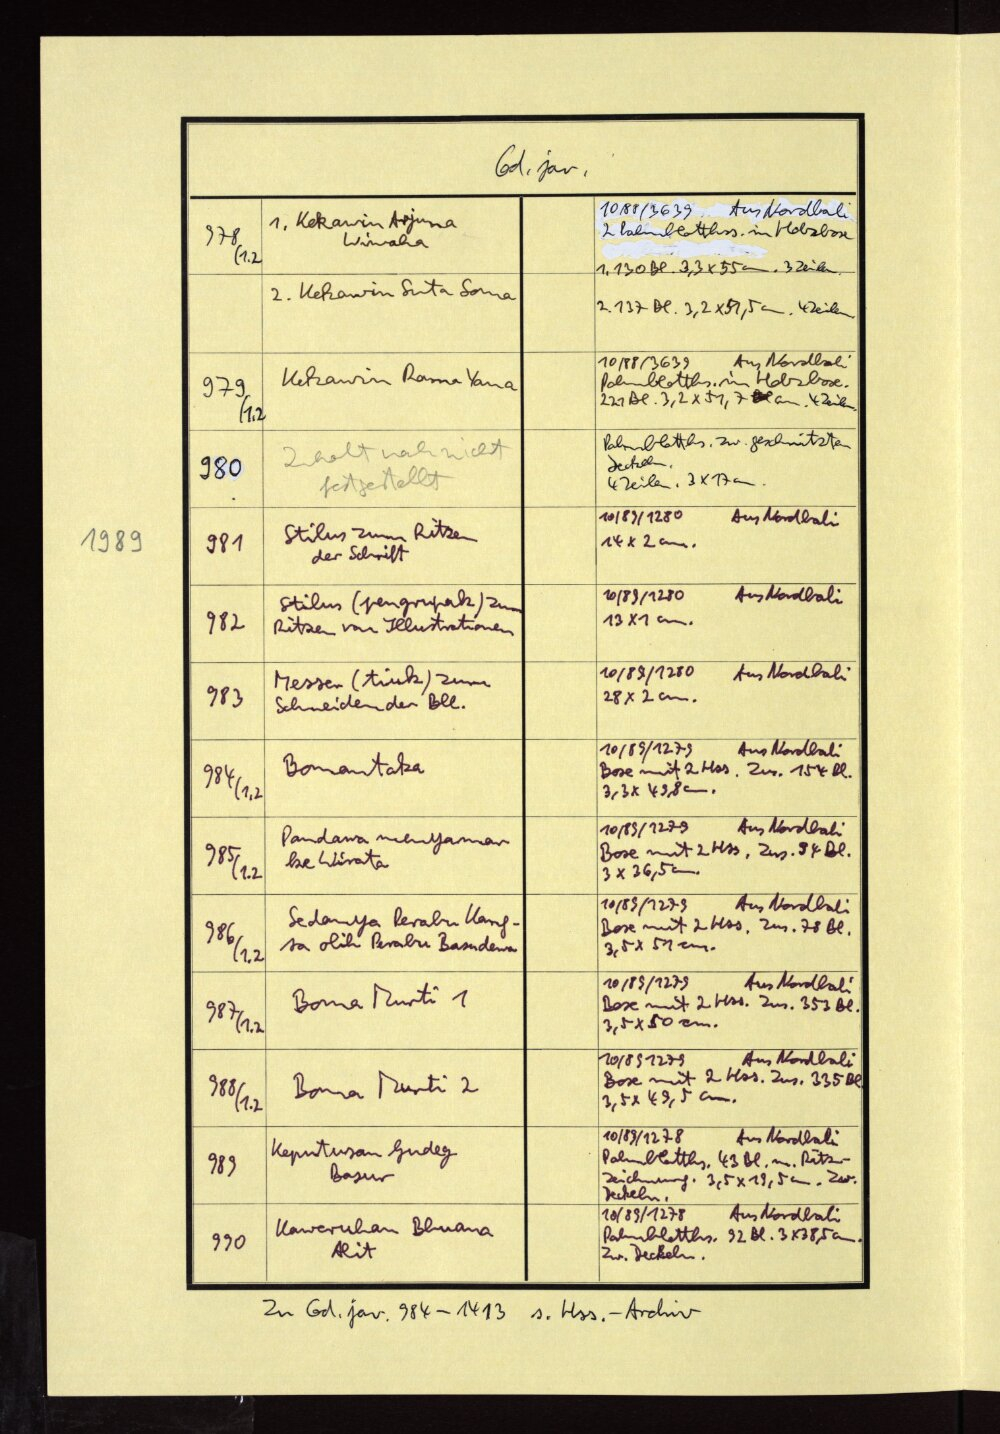 Cod. jav.
978/1.2
1. Kekawin Arjuna
Wiwaha
10/88/3639 Aus Nordbali
2 Palmblatthss. in Holzbox
1. 130 Bl. 3,3 x 55 cm. 3 Zeilen.
2. Kekawin Suta Soma
2. 137 Bl. 3,2 x 51,5 cm. 4 Zeilen.
979/1.2
Kekawin Rama Yana
10/88/3639 Aus Nordbali
Palmblatths. in Holzbox.
221 Bl. 3,2 x 51,7 cm. 4 Zeilen.
980
Inhalt noch nicht
festgestellt
Palmblatths. zw. geschnitzten
Deckeln.
4 Zeilen. 3 x 17 cm.
1989
981
Stilus zum Ritzen
der Schrift
10/89/1280 Aus Nordbali
14 x 2 cm.
982
Stilus (pengrupak) zum
Ritzen von Illustrationen
10/89/1280 Aus Nordbali
13 x 1 cm.
983
Messer (tiuk) zum
Schneiden der Bll.
10/89/1280 Aus Nordbali
28 x 2 cm.
984/1.2
Bomantaka
10/89/1279 Aus Nordbali
Box mit 2 Hss. Zus. 154 Bl.
3,3 x 49,8 cm.
985/1.2
Pandawa menyamar
ke Wirata
10/89/1279 Aus Nordbali
Box mit 2 Hss. Zus. 94 Bl.
3 x 36,5 cm.
986/1.2
Sedanya Perabu Kang-
sa olih Perabu Basudewa
10/89/1279 Aus Nordbali
Box mit 2 Hss. Zus. 78 Bl.
3,5 x 51 cm.
987/1.2
Boma Murti 1
10/89/1279 Aus Nordbali
Box mit 2 Hss. Zus. 353 Bl.
3,5 x 50 cm.
988/1.2
Boma Murti 2
10/89 1279 Aus Nordbali
Box mit 2 Hss. Zus. 335 Bl
3,5 x 49,5 cm.
989
Keputusan Gudeg
Basur
10/89/1278 Aus Nordbali
Palmblatths. 43 Bl. m. Ritz-
zeichnung. 3,5 x 19,5 cm. Zw.
Deckeln.
990
Kaweruhan Bhuana
Alit
10/89/1278 Aus Nordbali
Palmblatths. 92 Bl. 3 x 38,5 cm.
Zw. Deckeln.
Zu Cod. jav. 984 – 1413 s. Hss.-Archiv